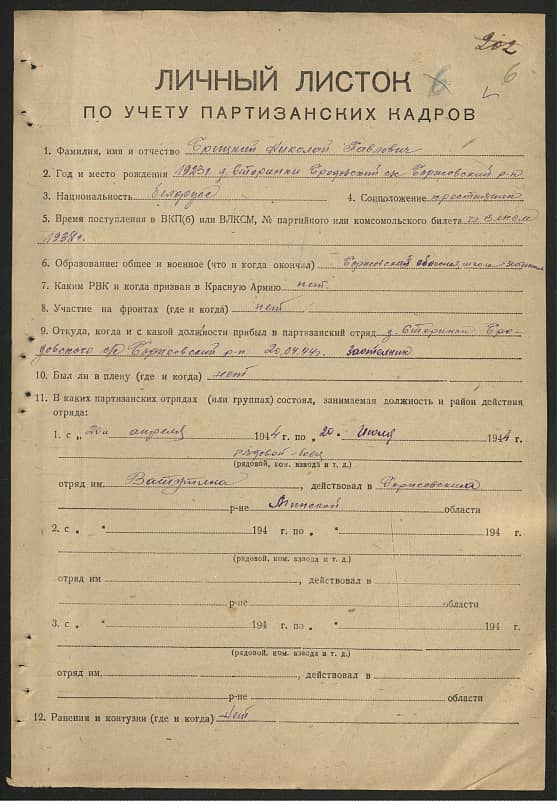 202
6
ЛИЧНЫЙ ЛИСТОК
ПО УЧЕТУ ПАРТИЗАНСКИХ КАДРОВ
1. Фамилия, имя и отчество Николай Павлович
2. Год и место рождения 1923 г. д. Старинки Бродовский с/с Борисовский р-н
3. Национальность белорус 4. Соцположение крестьянин
5. Время поступления в ВКП(б) или ВЛКСМ, № партийного или комсомольского билета
1938 г.
6. Образование: общее и военное (что и когда окончил) Борисовская школа
7. Каким РВК и когда призван в Красную Армию нет
8. Участие на фронтах (где и когда) нет
9. Откуда, когда и с какой должности прибыл в партизанский отряд д. Старинки Бро-
довского с/с Борисовский р-н 20.04.44г.
10. Был ли в плену (где и когда) нет
11. В каких партизанских отрядах (или группах) состоял, занимаемая должность и район действия
отряда:
1. с „ 20 " апреля 1944 г. по „ 20 " Июля 1944 г.
рядовой-боец
(рядовой, ком. взвода и т. д.)
отряд им Ватутина, действовал в Борисовским
р-не Минской области
2. с „ " 194 г. по „ " 194 г.
(рядовой, ком. взвода и т. д.)
отряд им , действовал в
р-не области
3. с „ " 194 г. по „ " 194 г.
(рядовой, ком. взвода и т. д.)
отряд им, , действовал в
р-не области
12. Ранения и контузии (где и когда) нет